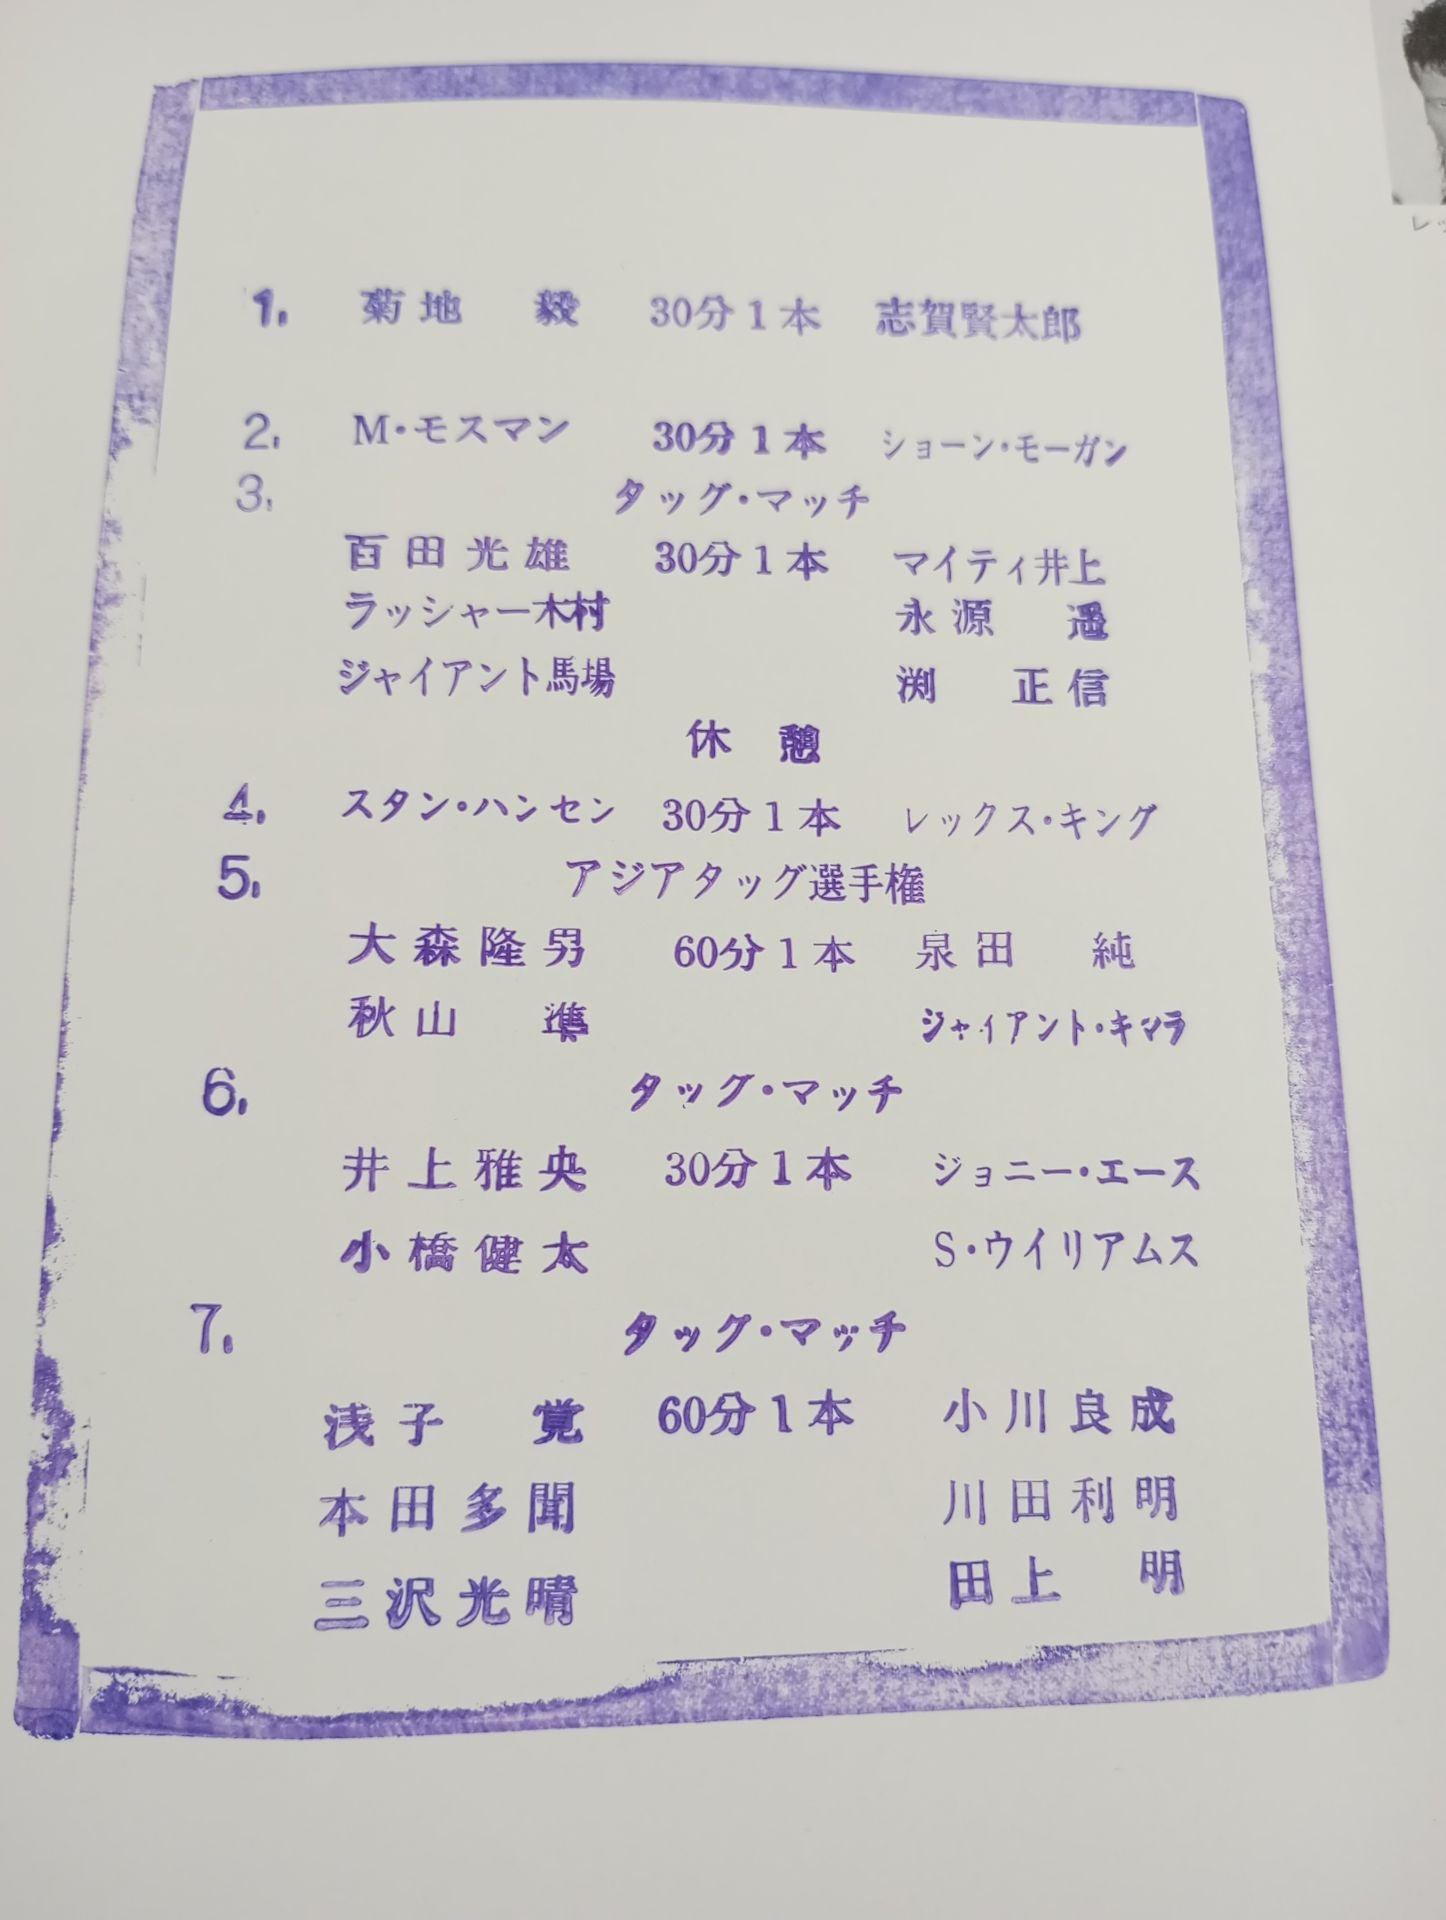 1. 菊地 毅 30分1本 志賀賢太郎
2. M・モスマン 30分1本 ショーン・モーガン
3. タッグ・マッチ
百田光雄 30分1本 マイティ井上
ラッシャー木村 永源 遥
ジャイアント馬場 渕 正信
休憩
4. スタン・ハンセン 30分1本 レックス・キング
5. アジアタッグ選手権
大森隆男 60分1本 泉田 純
秋山 準 ジャイアント・キマラ
6. タッグ・マッチ
井上雅央 30分1本 ジョニー・エース
小橋健太 S・ウイリアムス
7. タッグ・マッチ
浅子 覚 60分1本 小川良成
本田多聞 川田利明
三沢光晴 田上 明